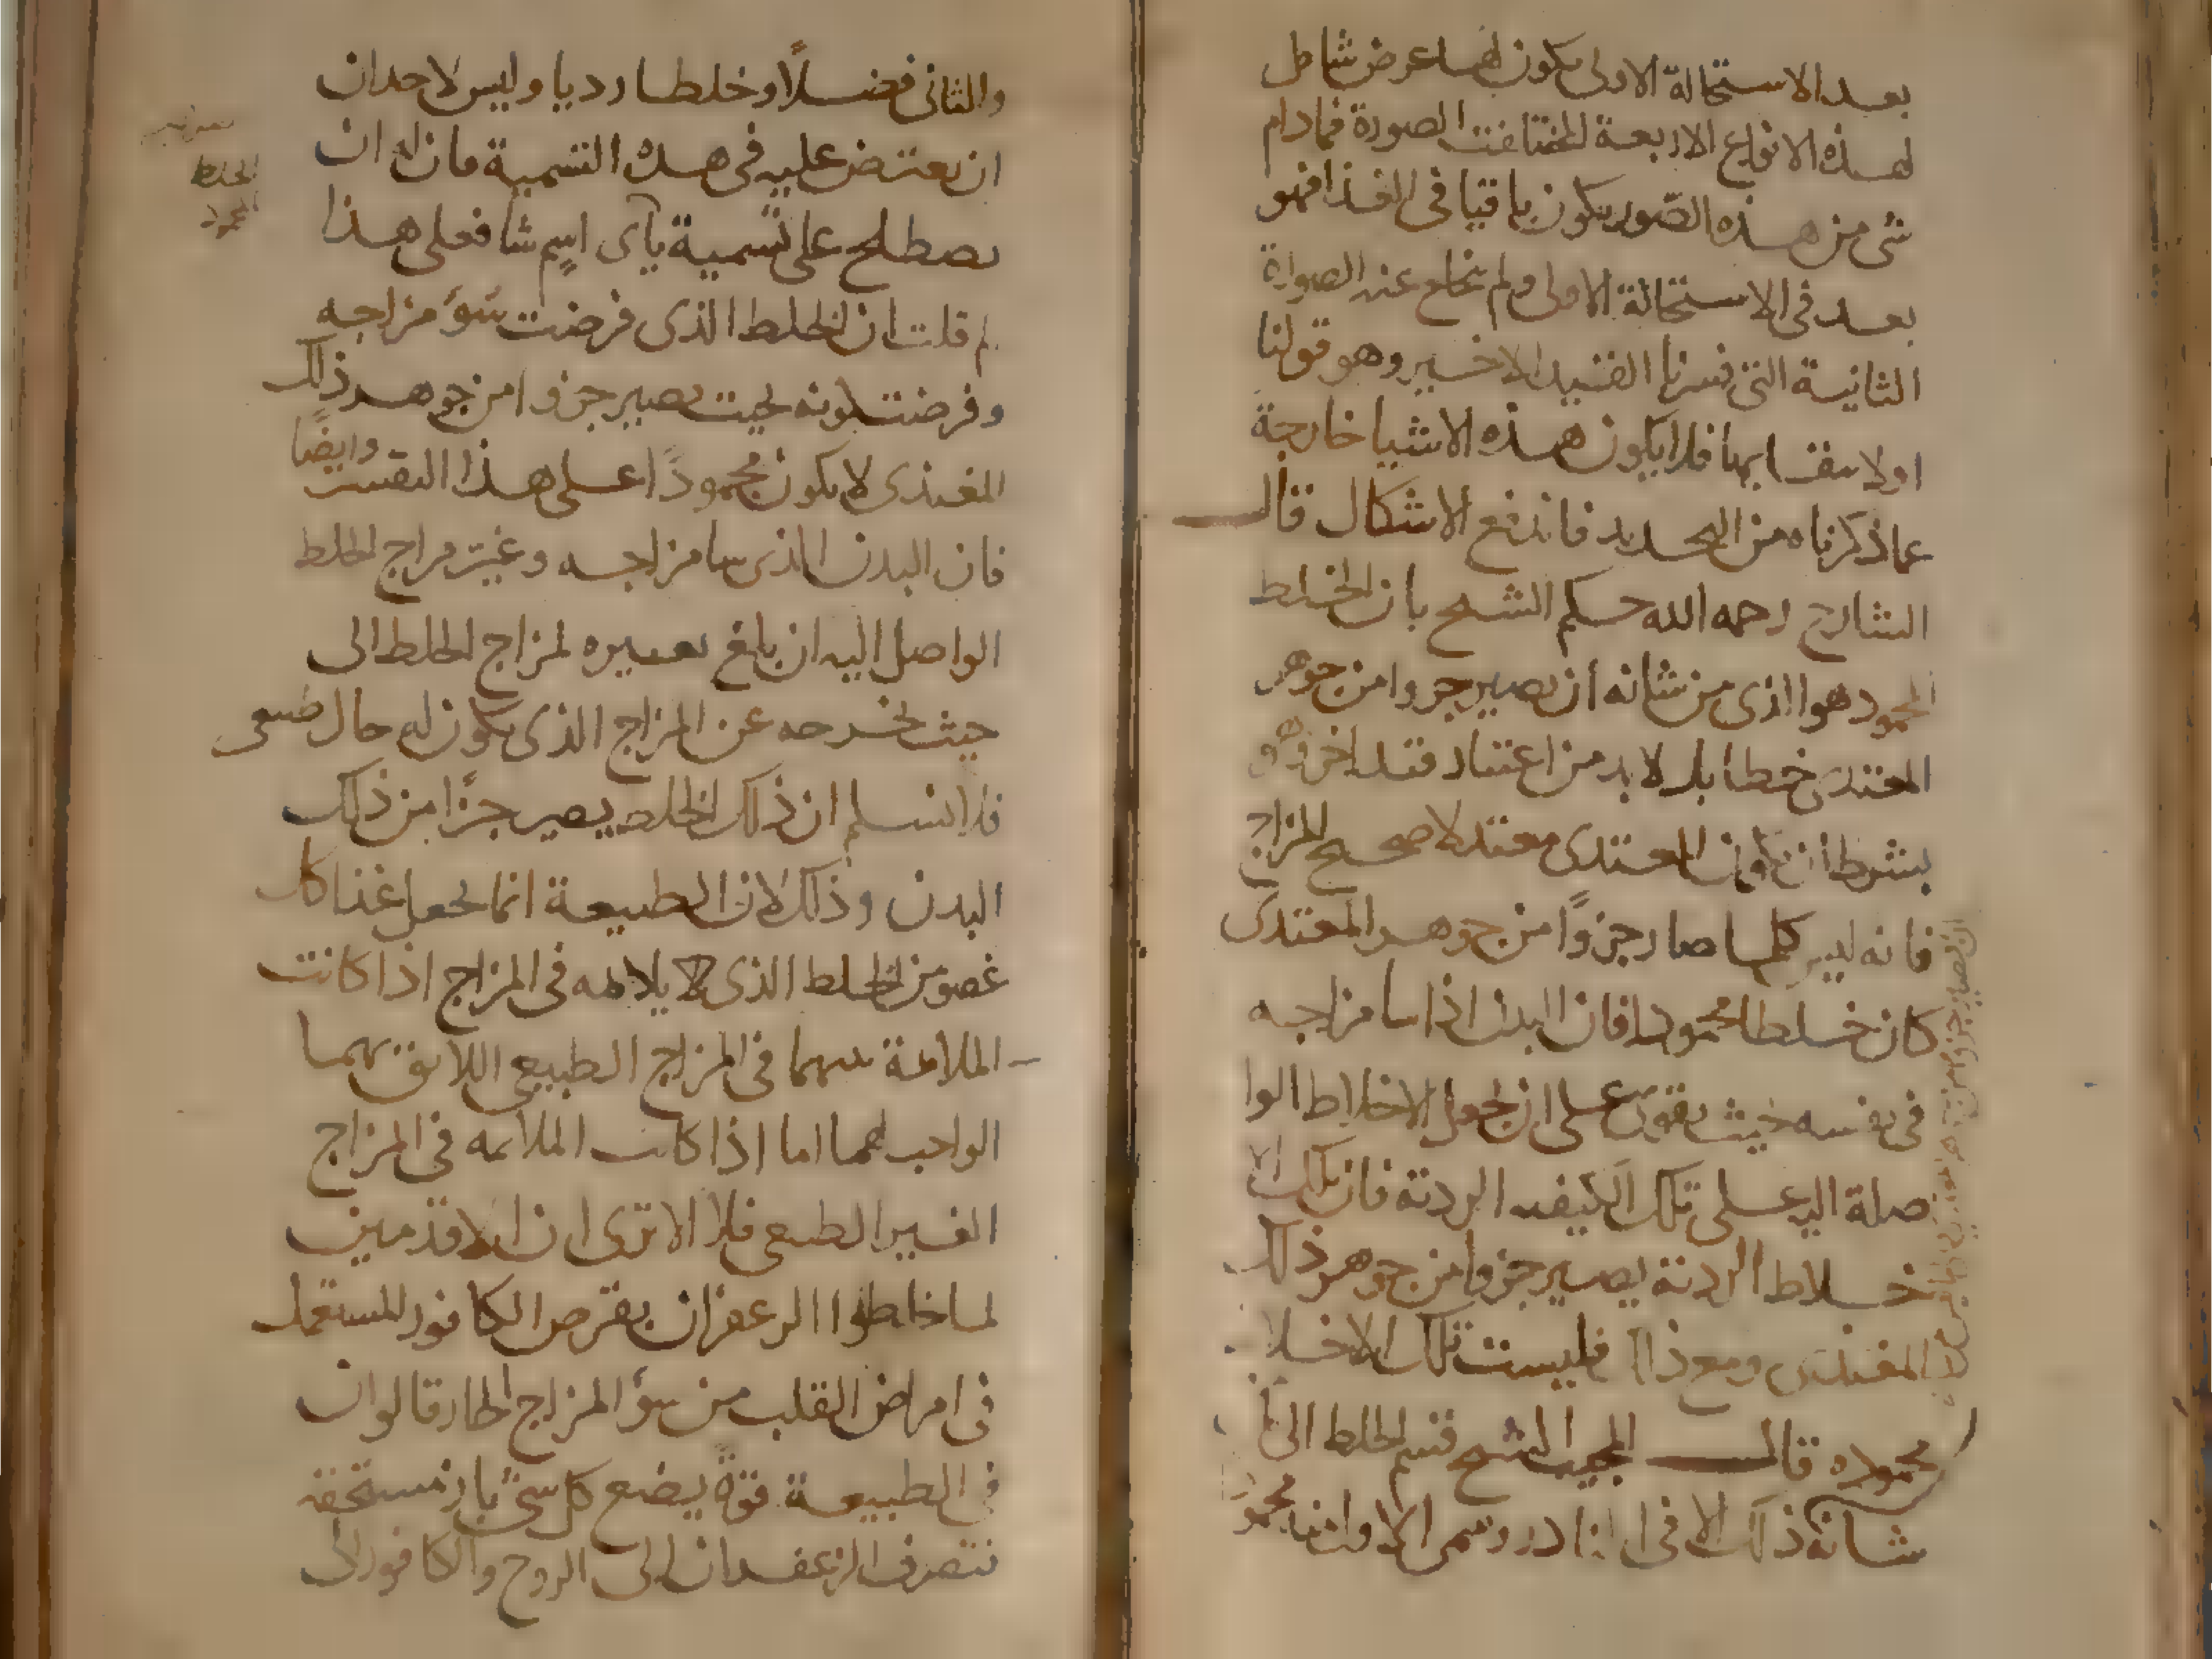 بعد الاستحالة الاولى يكون لها عرض شامل
لهذه الانواع الاربعة المختلفة الصورة فمادام
شى من هذه الصّور يكون باقيا فى الغذا فهو
بعد فى الاستحالة الاولى ولم يخلع عنه الصورة
الثانية التى فسرنا القيد الاخير وهو قولنا
اولا بها فلا يكون هذه الاشيا خارجة
عما ذكرناه من التحديد فاندفع الاشكال قال
الشارح رحمه الله حكم الشيخ بان الخلط
المحمود هو الذى من شانه ان يصير جزوا من جوهر
المغتذى خطا بل لا بد من قيد اخر وهو
بشرط ان يكون المغتذى معتدلا صحيح المزاج
فانه ليس كلما صار جزوًا من جوهر المغتذى
كان خلطا محمودا فان البدن اذا سا مزاجه
فى نفسه حيث يقوى على ان يجعل الاخلاط الوا
صلة اليه على تلك الكيفيه الردئة فان تلك الا
خلاط الردئة يصير جزوا من جوهر ذلك
المغتذى ومع ذلك فليست تلك الاخلاط
محموده قال المجيب الشيخ قسم الخلط الى ما
شانه ذلك الا فى النادر وسمى الاول منه محمودًا
ان يصير جزوا من جوهر
والثانى فضلًا وخلطا رديا وليس لاحد ان
ان يعترض عليه فى هذه التسمية فان له ان
يصطلح على تسمية باى اسم شا فعلى هذا
لم قلت ان الخلط الذى فرضت سوٴ مزاجه
وفرضت كونه بحيث يصير جزوا من جوهر ذلك
المغتذى لا يكون محمودًا على هذا التفسير وايضًا
فان البدن الذى سا مزاجه وغيّر مزاج الخلط
الواصل اليه ان بلغ تغييره لمزاج الخلط الى
حيث يخرجه عن المزاج الذى يكون له حال طبيعى
فلا نسلم ان ذلك الخلط يصير جزًا من ذلك
البدن وذلك لان الطبيعة انما يجعل غذا كل
عضو من الخلط الذى يلائمه فى المزاج اذا كانت
الملائمة بينهما فى المزاج الطبيعى اللائق بهما
الواجب لهما اما اذا كانت الملائمه فى المزاج
الغير الطبيعى فلا الا ترى ان الاقدمين
لما خلطوا الزعفران بقرص الكافور المستعمل
فى امراض القلب من سوٴ المزاج الحار قالوا ان
فى الطبيعة قوةً يضع كل شىٴ بازا مستحقه
فتصرف الزعفران الى الروح والكافور الى
الخلط
المحمود